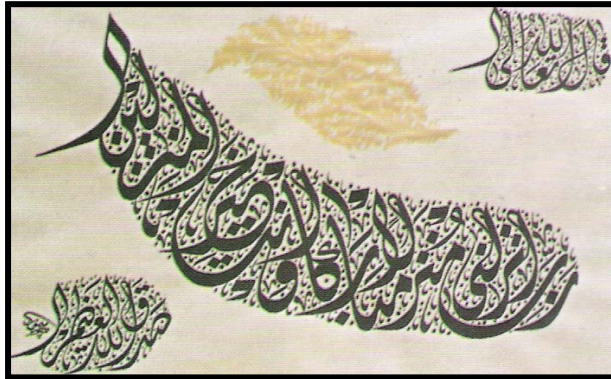 قال الله تعالى
رب انزلني منزلا مباركا وانت خير المنزلين
صدق الله العظيم